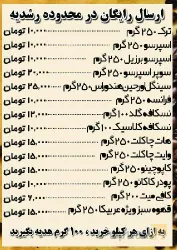 ارسال رایگان در محدوده رشدیه
ترک ۲۵۰ گرم ۱۰,۰۰۰ تومان
اسپرسو ۲۵۰ گرم ۱۰,۰۰۰ تومان
اسپرسو برزیل ۲۵۰ گرم تومان
سوپر اسپرسو ۲۵۰ گرم ۲۰,۰۰۰ تومان
سینگل اورجین هندوراس ۲۵۰ گرم ۲۵,۰۰۰ تومان
فرانسه ۲۵۰ گرم ۱۰,۰۰۰ تومان
نسکافه گلد ۱۰۰ گرم ۱۲,۰۰۰ تومان
نسکافه کلاسیک ۱۰۰ گرم ۱۰,۰۰۰ تومان
هات چاکلت ۲۵۰ گرم ۱۵,۰۰۰ تومان
وایت چاکلت ۲۵۰ گرم ۱۵,۰۰۰ تومان
کاپوچینو ۲۵۰ گرم ۱۵,۰۰۰ تومان
پودر کاکائو ۲۵۰ گرم ۱۰,۰۰۰ تومان
کافی میت ۲۰۰ گرم ۶,۰۰۰ تومان
قهوه سبز ویژه عربیکا ۲۵۰ گرم ۱۵,۰۰۰ تومان
به ازای هر کیلو خرید، ۱۰۰ گرم هدیه بگیرید